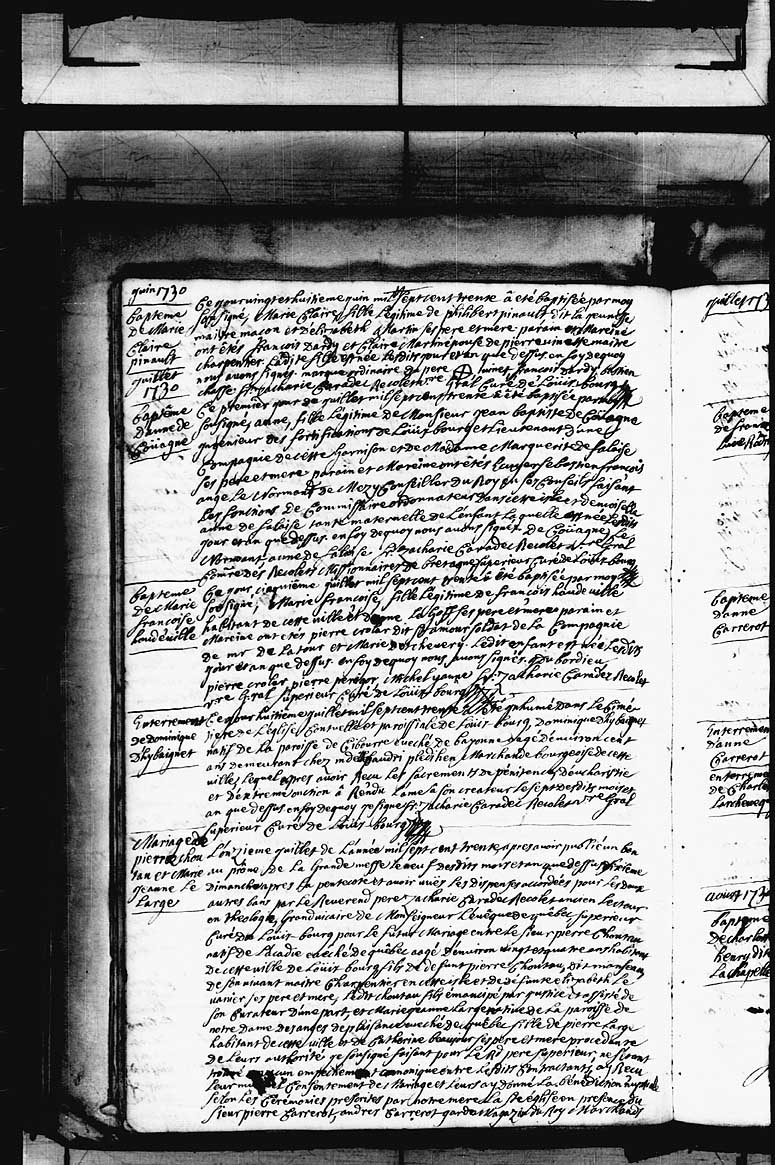 juin 1730
bapteme
de Marie
Claire
pinault
Ce jour vingt et huitieme juin mil sept cent trente a été baptisée par moy
sousigné, Marie Claire, fille Legitime de philibert pinault dit la jeunesse
maitre macon et d'Elizabeth Martin ses pere et mere parain et Mareine
ont étés françois Dardy et Claire Martin épouse de pierre maitre
charpentier. Ladite fille est née lesdits jour et an que dessus en foy de quoy
nous avons signés. marque ordinaire du pere françois dardy
fr. zacharie Caradec Recolet Curé de Loüis bourg
juillet
1730
baptême
D'anne de
Coüagne
Ce premier jour de juillet mil sept cent trente a été baptisée par moy
sousigné, anne, fille Legitime de Monsieur jean baptiste de Coüagne
ingenieur des fortifications de Loüis bourg et Lieutenant d'une
Compagnie de cette Garnison et de Madame Marguerite de Falaise
ses pere et mere parain et Mareine ont étés françois
ange Le Normant De Mezy Conseiller du Roy en ses Conseils faisant
Les fonctions de Commissaire ordonnateur dans cette isle et demoiselle
anne de falaise tante maternelle de L'enfant Laquelle est née Lesdits
jour et an que dessus. en foy de quoy nous avons signés. De Coüagne, Le
Normant, anne de falaise fr. zacharie Caradec Recolet
des Recolets Missionnaires de Bretagne superieur Curé de Loüis bourg
bapteme
de Marie
françoise
houdeville
Ce jour cinquième juillet mil sept cent trente a été baptisée par moy
sousigné, Marie francoise fille Legitime de françois houdeville
habitant de cette ville et d'anne Le Goff ses pere et mere parain et
Mareine ont étés pierre crolar dit st amour soldat de La Compagnie
de mr de La tour et Marie Detchevery. Ledit enfant est née Lesdits
jour et an que dessus. en foy de quoy nous avons signés. Du bordieu
pierre crolar pierre Michel fr. zacharie Caradec Recolet
superieur Curé de Loüis bourg
interrement
de Dominique
Dhybaignet
Ce jour huitieme juillet mil sept cent trente a été inhumé dans Le Cime-
tiere de L'église Conventuelle et paroissiale de Loüis bourg Dominique Dhybaignet
natif de La paroisse de Cibourre evêché de bayonne agé d'environ cent
ans demeurant chez Marchande bourgeoise de cette
ville, Lequel apres avoir Recu Les sacrements de penitence, d'eucharistie
et d'extreme onction a Rendu Lame a son createur le sept desdits mois et
an que dessus en foy de quoy je signe fr. zacharie Caradec Recolet
superieur Curé de Loüis bourg
Mariage de
pierre chou
tau et Marie
Jeanne Le
Large
L'onzieme juillet de L'année mil sept cent trente, apres avoir publié un ban
au prône de La Grande messe Le neuf desdits mois et an que dessus
Dimanche apres La pentecote et avoir vuës Les dispenses accordées pour Les deux
autres bans par Le Reverend pere zacharie Caradec Recolet ancien Lecteur
en theologie, Grand vicaire de Monseigneur L'evêque de québec, superieur
Curé de Loüis bourg pour Le futur Mariage entre Le sieur pierre Choutau
natif de L'acadie evêché de québec aagé d'environ vingt et quatre ans habitant
de cette ville de Loüis bourg fils de defunt pierre Choutau, dit
de son vivant maitre Charpentier en cette isle et de defunte Elizabeth Le
vanier ses pere et mere, Ledit choutau fils émancipé par justice et assisté de
son Curateur d'une part, et Marie jeanne Large native de La paroisse de
notre Dame des anges de plaisance evêché de québec fille de pierre Large
habitant de cette ville et de Catherine beaujour ses pere et mere procedante
de Leurs authorité, je sousigné faisant pour Le Rd pere superieur, ne s'etant
trouvé aucun empechement canonique entre Lesdits Contractants, ay Recu
Leur mutuel Consentement de Mariage et Leurs ay donné La bénédiction nuptiale
selon Les Cérémonies prescrites par notre mere La ste église en presence du
sieur pierre Carrerot, andres Carrerot garde Magazin du Roy
juillet 173
bapteme
de
bapteme
D'anne
Carrerot
interrement
D'anne
Carrerot
enterrement
de Charles
Larcheveq
aoust 1730
bapteme
De charles
henry dit
La chapelle